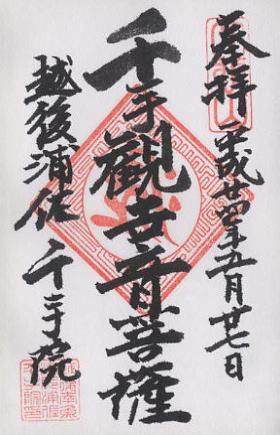 奉拝 平成廿四年五月廿七日
千手観世音菩薩
越後浦佐 千手院